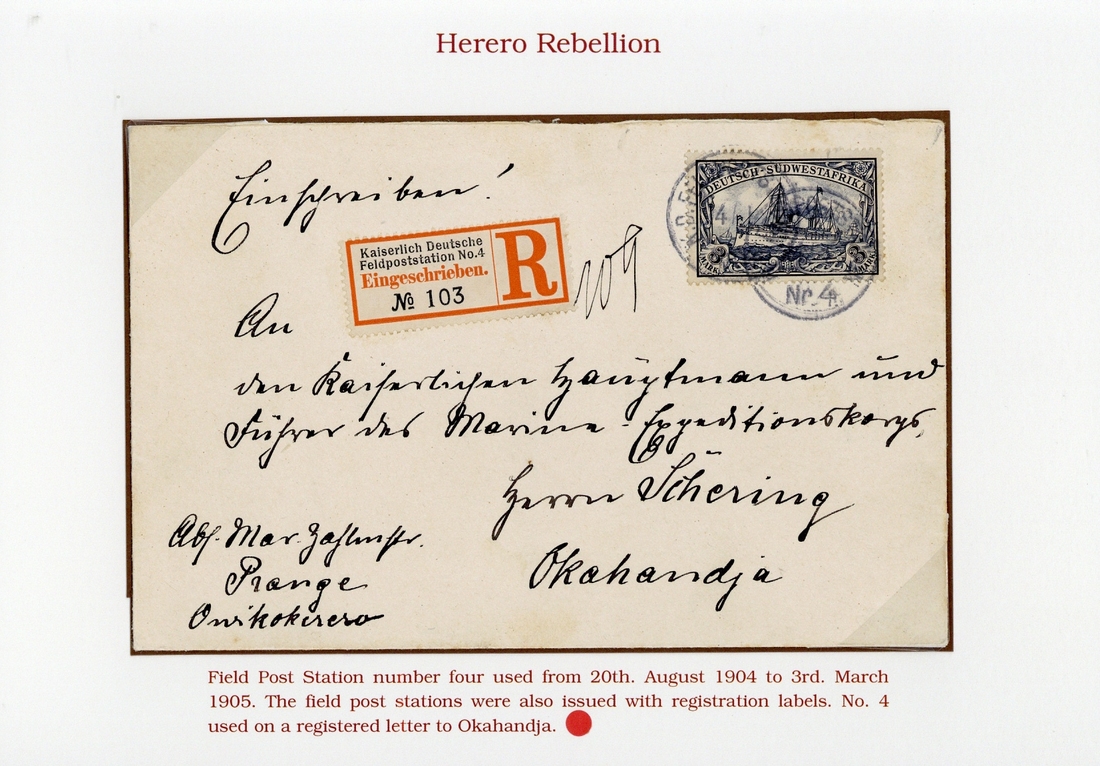 Herero Rebellion
Einschreiben!
DEUTSCH-SÜDWESTAFRIKA
3 MARK
3 MARK
Nr. 4.
Kaiserlich Deutsche
Feldpoststation No.4
Eingeschrieben.
№ 103
R
109
An
den Kaiserlichen Hauptmann und
Führer des Marine-Expeditionskorps,
Herrn Schering
Okahandja
Abs. Mar. Zahlmstr.
Prange
Owikokorero
Field Post Station number four used from 20th. August 1904 to 3rd. March
1905. The field post stations were also issued with registration labels. No. 4
used on a registered letter to Okahandja.